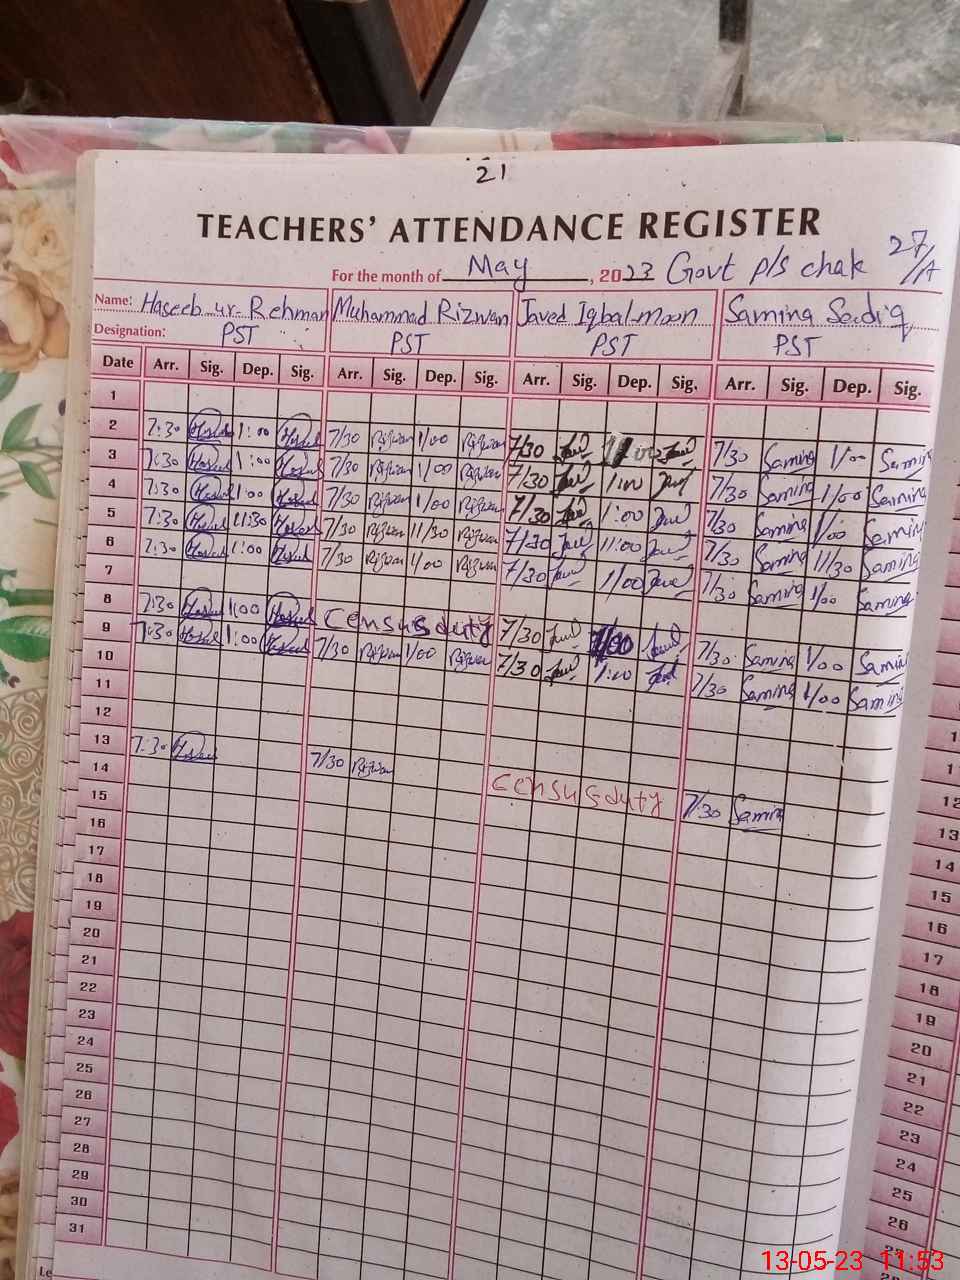 21
TEACHERS' ATTENDANCE REGISTER
For the month of May, 2023 Govt p/s chak 27/A
Name: Haseeb ur Rehman Muhammad Rizwan Javed Iqbal moon Samina Sediq
Designation: PST PST PST PST
Date Arr. Sig. Dep. Sig. Arr. Sig. Dep. Sig. Arr. Sig. Dep. Sig. Arr. Sig. Dep. Sig.
1
2 7:30 1:00 7/30 Rizwan 1/00 Rizwan 7/30 1:00 7/30 Samina 1/00 Samina
3 7:30 1:00 7/30 Rizwan 1/00 Rizwan 7/30 1:00 7/30 Samina 1/00 Samina
4 7:30 1:00 7/30 Rizwan 1/00 Rizwan 7/30 1:00 7/30 Samina 1/00 Samina
5 7:30 11:30 7/30 Rizwan 11/30 Rizwan 7/30 11:00 7/30 Samina 11/30 Samina
6 7:30 1:00 7/30 Rizwan 1/00 Rizwan 7/30 1/00 7/30 Samina 1/00 Samina
7
8 7:30 1:00 Census duty 7/30 1/00 7/30 Samina 1/00 Samina
9 7:30 1:00 7/30 Rizwan 1/00 Rizwan 7/30 1:00 7/30 Samina 1/00 Samina
10
11
12
13 7:30 7/30 Rizwan Census duty 7/30 Samina
14
15
16
17
18
19
20
21
22
23
24
25
26
27
28
29
30
31
11
12
13
14
15
16
17
18
19
20
21
22
23
24
25
26
13-05-23 11:53